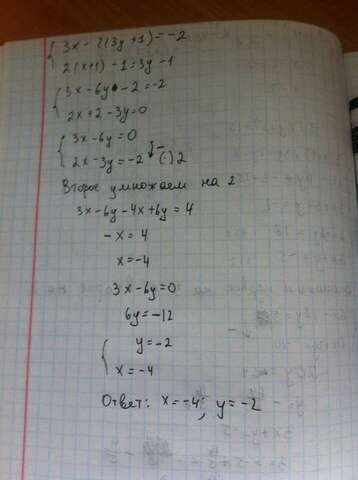 3x - 2(3y + 1) = -2
2(x+1) - 1 = 3y - 1
3x - 6y - 2 = -2
2x + 2 - 3y = 0
3x - 6y = 0
2x - 3y = -2 ↓ - (·) 2
Второе умножаем на 2
3x - 6y - 4x + 6y = 4
- x = 4
x = -4
3x - 6y = 0
6y = -12
y = -2
x = -4
Ответ: x = -4; y = -2